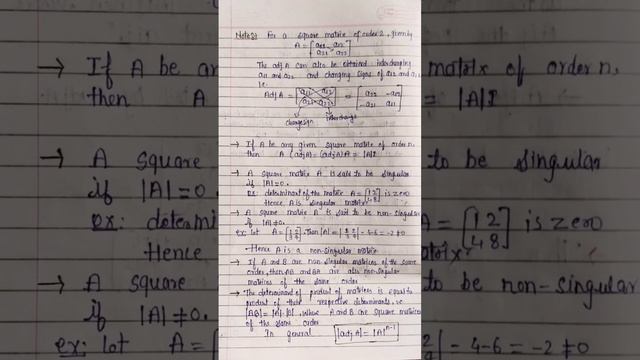 Note: For a square matrix of order 2, given by
A = [a₁₁ a₁₂
a₂₁ a₂₂]
The adj A can also be obtained interchanging
a₁₁ and a₂₂ and changing signs of a₁₂ and a₂₁
i.e.
Adj A = [a₁₁ a₁₂ = [a₂₂ -a₁₂
a₂₁ a₂₂] -a₂₁ a₁₁]
change sign interchange
→ If A be any given square matrix of order n,
then A (adj A) = (adj A) A = |A| I
→ A square matrix A is said to be singular
if |A| = 0.
ex: determinant of the matrix A = [1 2
4 8] is zero
Hence A is singular matrix
→ A square matrix A is said to be non-singular
if |A| ≠ 0.
ex: let A = Then |A| = = 4-6 = -2 ≠ 0
Hence A is a non-singular matrix
→ If A and B are non singular matrices of the same
order, then AB and BA are also non-singular
matrices of the same order
→ The determinant of product of matrices is equal to
product of their respective determinants, i.e
|AB| = |A| |B|, where A and B are square matrices
of the same order
In general |adj A| = |A|ⁿ⁻¹
→ If A be an
then A
→ A square
if |A| = 0.
ex: determin
Hence
→ A square
if |A| ≠ 0.
ex: let A = [
matrix of order n,
= |A| I
to be singular
A = [1 2
4 8] is zero
matrix
to be non-singular
| - 4-6 = -2 ≠ 0